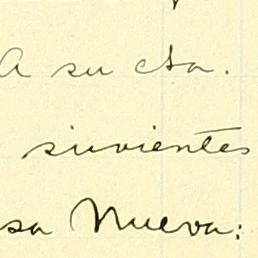 A su cta.
sirvientes
sa Nueva: